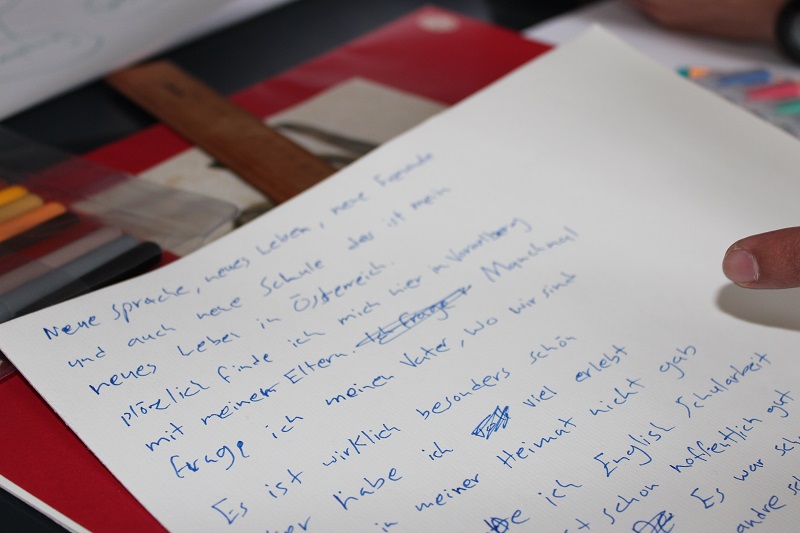 Neue Sprache, neues Leben, neue Freunde
und auch neue Schule das ist mein
neues Leben in Österreich.
plözlich finde ich mich hier in Vorarlberg
mit meinen Eltern. Ich frage Manchmal
frage ich meinen Vater, wo wir sind
Es ist wirklich besonders schön
habe ich viel erlebt
in meiner Heimat nicht gab
ich English Schularbeit
schon hoffentlich gut
Es war